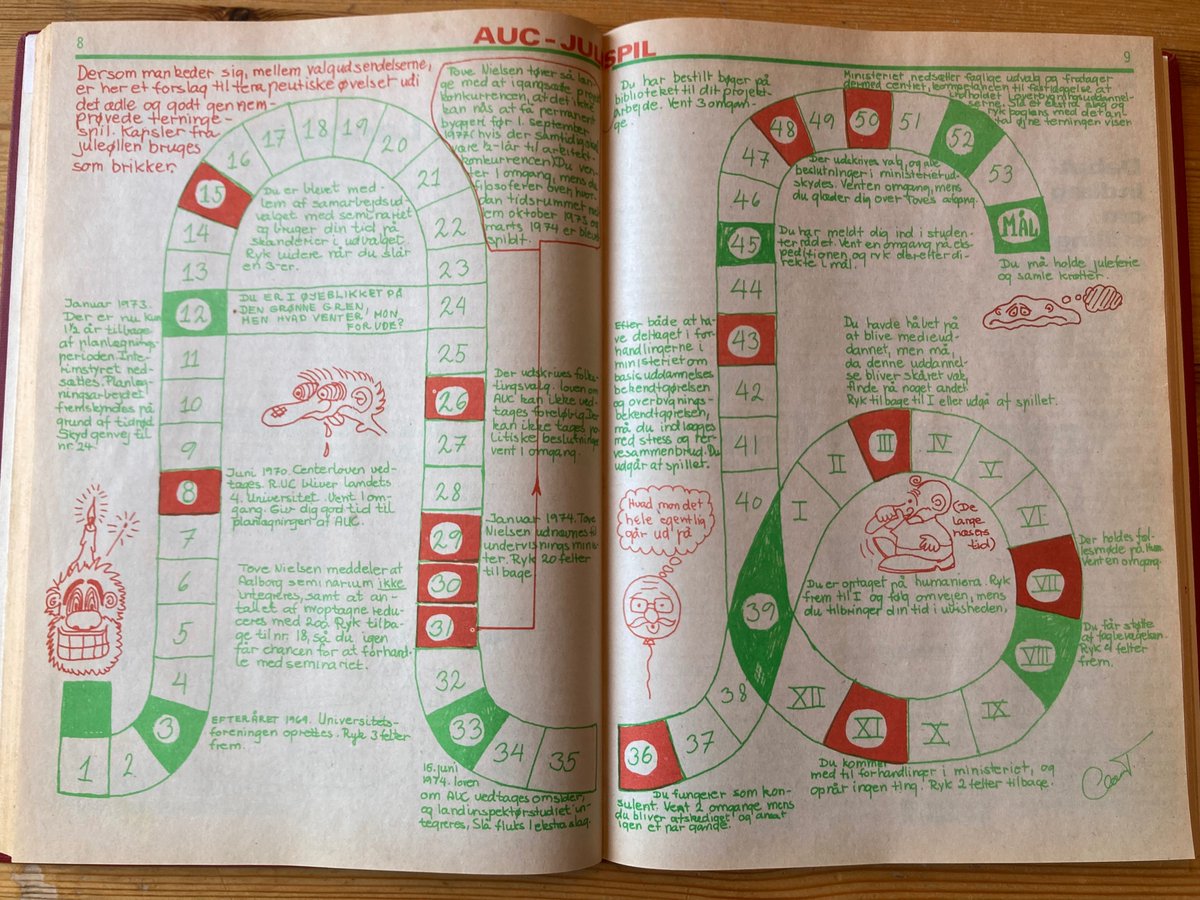 8
AUC-JULESPIL
9
Dersom man keder sig, mellem valgudsendelserne,
er her et forslag til terapeutiske øvelser udi
det ædle og godt gennem-
prøvede terninge-
spil. Kapsler fra
juleøllen bruges
som brikker.
Tove Nielsen tøver så læn-
ge med at igangsætte projekt
konkurrencen, at det ikke
kan nås at få permanent
byggeri før 1. september
1977 (hvis der samtidig skal
være ½-1 år til arkitekt-
konkurrencen). Du ven-
ter 1 omgang, mens du
filosoferer over, hvor-
dan tidsrummet mel
em oktober 1973 og
marts 1974 er blevet
spildt.
Du er blevet med-
lem af samarbejdsud-
valget med seminariet
og bruger din tid på
skænderier i udvalget.
Ryk videre når du slår
en 3-er.
DU ER I ØJEBLIKKET PÅ
DEN GRØNNE GREN,
MEN HVAD VENTER, MON
FORUDE?
Januar 1973.
Der er nu kun
1½ år tilbage
af planlægnings-
perioden. Inte-
rimstyret ned-
sættes. Planlæg-
ningsarbejdet
fremskyndes på
grund af tidnød.
Skyd genvej til
nr. 24.
Der udskrives folke-
tingsvalg. Loven om
AUC kan ikke ved-
tages foreløbig. Der
kan ikke tages po-
litiske beslutninger
vent 1 omgang.
Juni 1970. Centerloven ved-
tages. RUC bliver landets
4. Universitet. Vent 1 om-
gang. Giv dig god tid til
planlægningen af AUC.
Januar 1974. Tove
Nielsen udnævnes til
undervisningsmini-
ster. Ryk 20 felter
tilbage
Tove Nielsen meddeler at
Aalborg seminarium ikke
integreres, samt at an-
tallet af nyoptagne redu-
ceres med 200. Ryk tilba-
ge til nr. 18, så du igen
får chancen for at forhand-
le med seminariet.
EFTERÅRET 1969. Universitets-
foreningen oprettes. Ryk 3 felter
frem.
15. juni
1974. Loven
om AUC vedtages omsider,
og landinspektørstudiet in-
tegreres. Slå fluks 1 ekstra slag.
1
2
3
4
5
6
7
8
9
10
11
12
13
14
15
16
17
18
19
20
21
22
23
24
25
26
27
28
29
30
31
32
33
34
35
Du har bestilt bøger på
biblioteket til dit projekt-
arbejde. Vent 3 omgan-
ge.
Ministeriet nedsætter faglige udvalg og fratager
dermed centret, kompetancen til fastlæggelse af
indholdet i overbygningsuddannel-
serne. Slå et ekstra slag og
Ryk baglæns med det an-
tal øjne terningen viser
Der udskrives valg, og alle
beslutninger i ministeriet ud-
skydes. Vent en omgang, mens
du glæder dig over Toves afgang.
Du har meldt dig ind i studen-
terrådet. Vent en omgang på eks-
peditionen, og ryk derefter di-
rekte i mål.
MÅL
Du må holde juleferie
og samle kræfter.
Efter både at ha-
ve deltaget i for-
handlingerne i
ministeriet om
basisuddannelses
bekendtgørelsen
og overbygnings-
bekendtgørelsen,
må du indlægges
med stress og ner-
vesammenbrud. Du
udgår af spillet.
Du havde håbet på
at blive medieud-
dannet, men må,
da denne uddannel-
se bliver skåret væk,
finde på noget andet.
Ryk tilbage til I eller udgå af spillet.
Hvad mon det
hele egentlig
går ud på
(De
lange
næsers
tid)
Du er optaget på humaniora. Ryk
frem til I og følg omvejen, mens
du tilbringer din tid i uvisheden.
Der holdes fæl-
lesmøde på Hum.
Vent en omgang.
Du får støtte
af fagbevægelsen.
Ryk 4 felter
frem.
Du kommer
med til forhandlinger i ministeriet, og
opnår ingen ting. Ryk 2 felter tilbage.
Du fungerer som kon-
sulent. Vent 2 omgange mens
du bliver afskediget og ansat
igen et par gange.
36
37
38
39
40
41
42
43
44
45
46
47
48
49
50
51
52
53
I
II
III
IV
V
VI
VII
VIII
IX
X
XI
XII